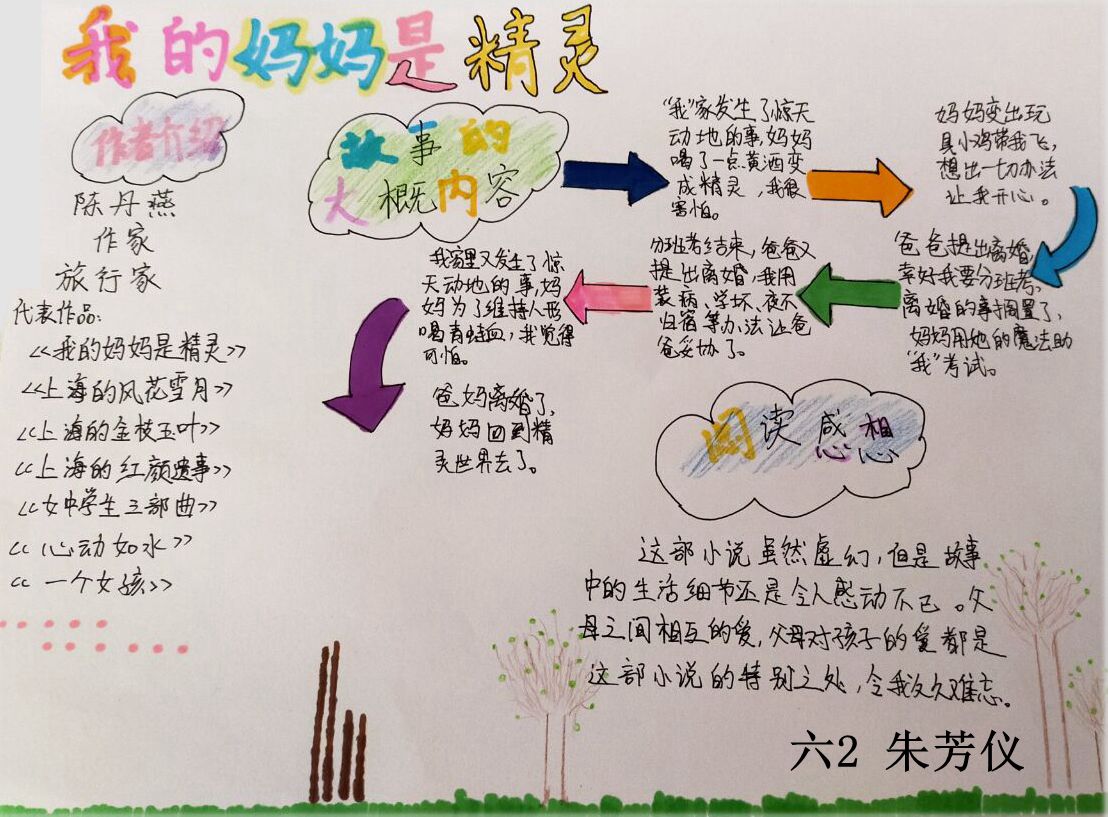 我的妈妈是精灵
作者介绍
陈丹燕
作家
旅行家
代表作品:
《我的妈妈是精灵》
《上海的风花雪月》
《上海的金枝玉叶》
《上海的红颜遗事》
《女中学生三部曲》
《心动如水》
《一个女孩》
故事的
大概内容
“我”家发生了惊天
动地的事,妈妈
喝了一点黄酒变
成精灵,我很
害怕。
妈妈变出玩
具小鸡带我飞,
想出一切办法
让我开心。
爸爸提出离婚,
幸好我要分班考,
离婚的事搁置了,
妈妈用她的魔法助
“我”考试。
分班考结束,爸爸又
提出离婚,我用
装病、学坏、夜不
归宿等办法让爸
爸妥协了。
我家里又发生了惊
天动地的事,妈
妈为了维持人形
喝青蛙血,我觉得
可怕。
爸妈离婚了,
妈妈回到精
灵世界去了。
阅读感想
这部小说虽然虚幻,但是故事
中的生活细节还是令人感动不已。父
母之间相互的爱,父母对孩子的爱都是
这部小说的特别之处,令我久久难忘。
六2 朱芳仪